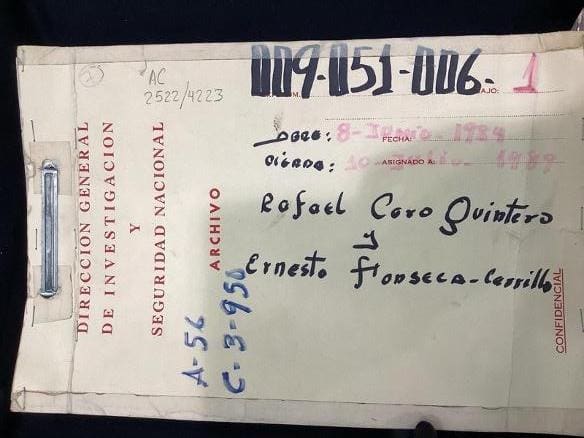 AC
2522/4223
009-051-006- 1
AJO:
ABRE: 8-Junio-1984
FECHA:
CIERRA: 10-
ASIGNADO A:
1989
Rafael Caro Quintero
y
Ernesto Fonseca-Carrillo
DIRECCION GENERAL
DE INVESTIGACION
Y
SEGURIDAD NACIONAL
ARCHIVO
A-56
C-3-950
CONFIDENCIAL